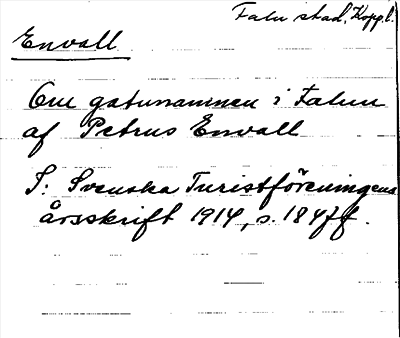 Falu stad, Kopp.l.
Envall
Om gatunamnen i Falun
af Petrus Envall
I: Svenska Turistföreningens
årsskrift 1914, s. 184 ff.